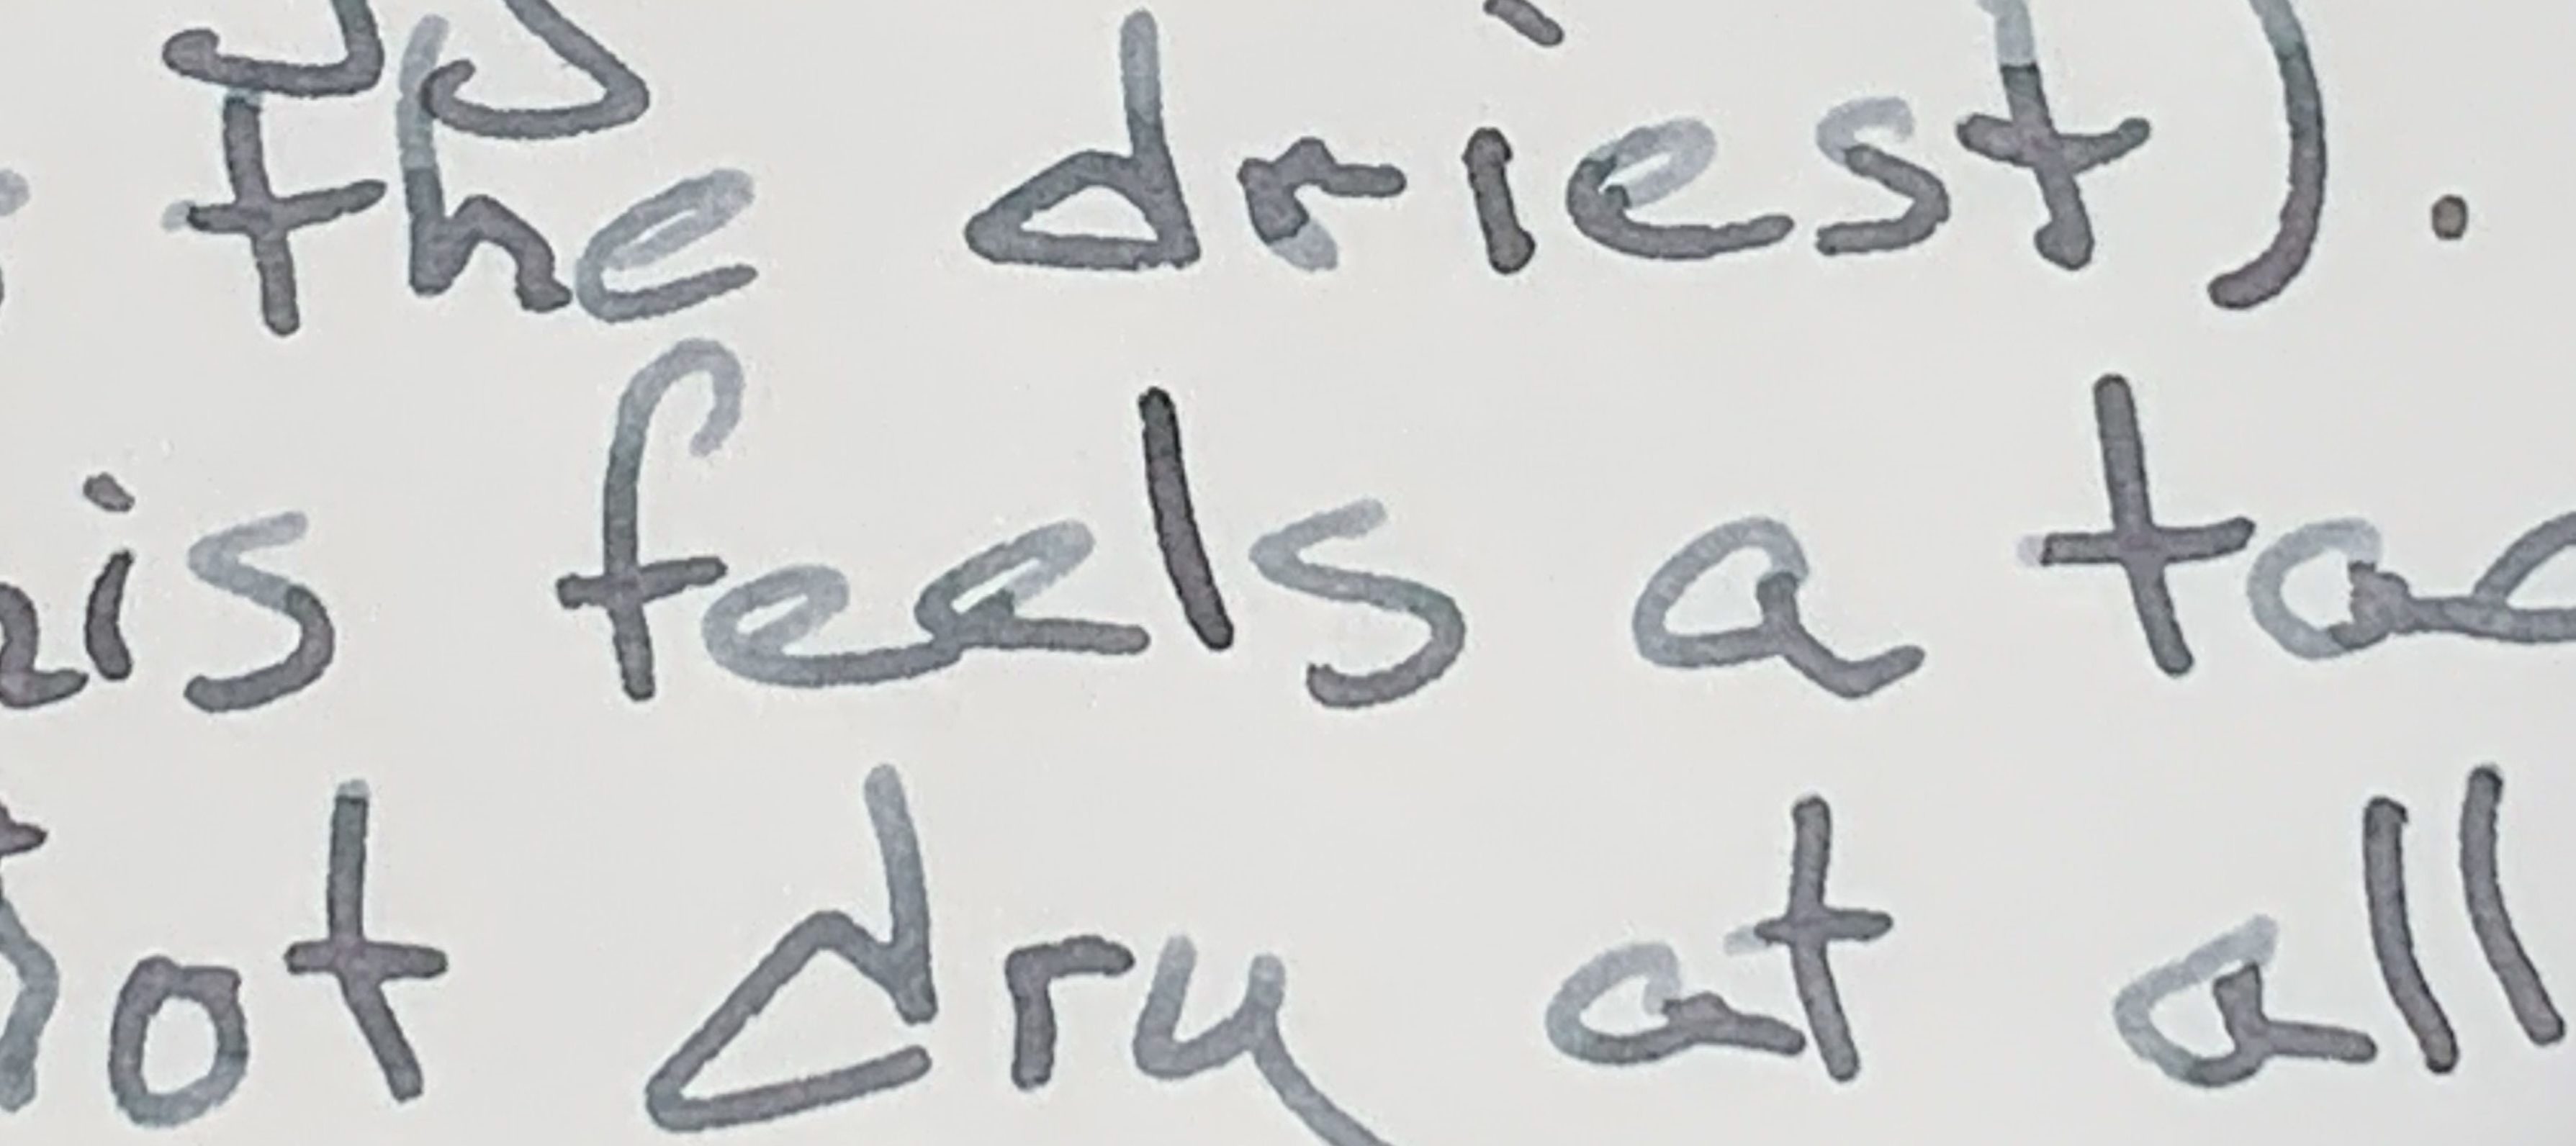 the driest).
is feels a
not dry at all